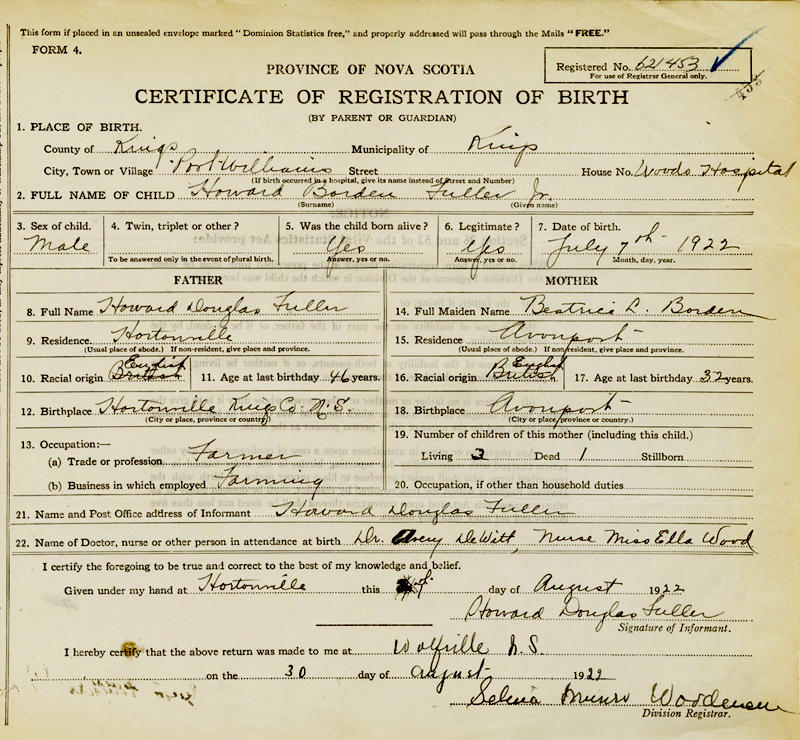 This form if placed in an unsealed envelope marked "Dominion Statistics free," and properly addressed will pass through the Mails "FREE."
FORM 4.
Registered No. 621453
For use of Registrar General only.
PROVINCE OF NOVA SCOTIA
CERTIFICATE OF REGISTRATION OF BIRTH
(BY PARENT OR GUARDIAN)
1. PLACE OF BIRTH.
County of Kings Municipality of Kings
City, Town or Village Port Williams Street House No. Woods Hospital
(If birth occurred in a hospital, give its name instead of Street and Number)
2. FULL NAME OF CHILD Howard Borden Fuller Jr.
(Surname) (Given name)
3. Sex of child. 4. Twin, triplet or other? 5. Was the child born alive? 6. Legitimate? 7. Date of birth.
Male Yes Yes July 7th 1922
To be answered only in the event of plural birth. Answer, yes or no. Answer, yes or no. Month, day, year.
FATHER MOTHER
8. Full Name Howard Douglas Fuller 14. Full Maiden Name Beatrice L. Borden
9. Residence. Hortonville 15. Residence Avonport
(Usual place of abode.) If non resident, give place and province. (Usual place of abode.) If non resident, give place and province.
10. Racial origin English British 11. Age at last birthday 46 years. 16. Racial origin English British 17. Age at last birthday. 32 years.
12. Birthplace Hortonville Kings Co. N.S. 18. Birthplace Avonport
(City or place, province or country) (City or place, province or country.)
13. Occupation:— 19. Number of children of this mother (including this child.)
(a) Trade or profession Farmer Living 3 Dead 1 Stillborn
(b) Business in which employed Farming 20. Occupation, if other than household duties
21. Name and Post Office address of Informant Howard Douglas Fuller
22. Name of Doctor, nurse or other person in attendance at birth Dr. Avery DeWitt, Nurse Miss Ella Wood
I certify the foregoing to be true and correct to the best of my knowledge and belief.
Given under my hand at Hortonville this day of August 1922
Howard Douglas Fuller
Signature of Informant.
I hereby certify that the above return was made to me at Wolfville N.S.
on the 30 day of August 1922
Munro
Division Registrar.